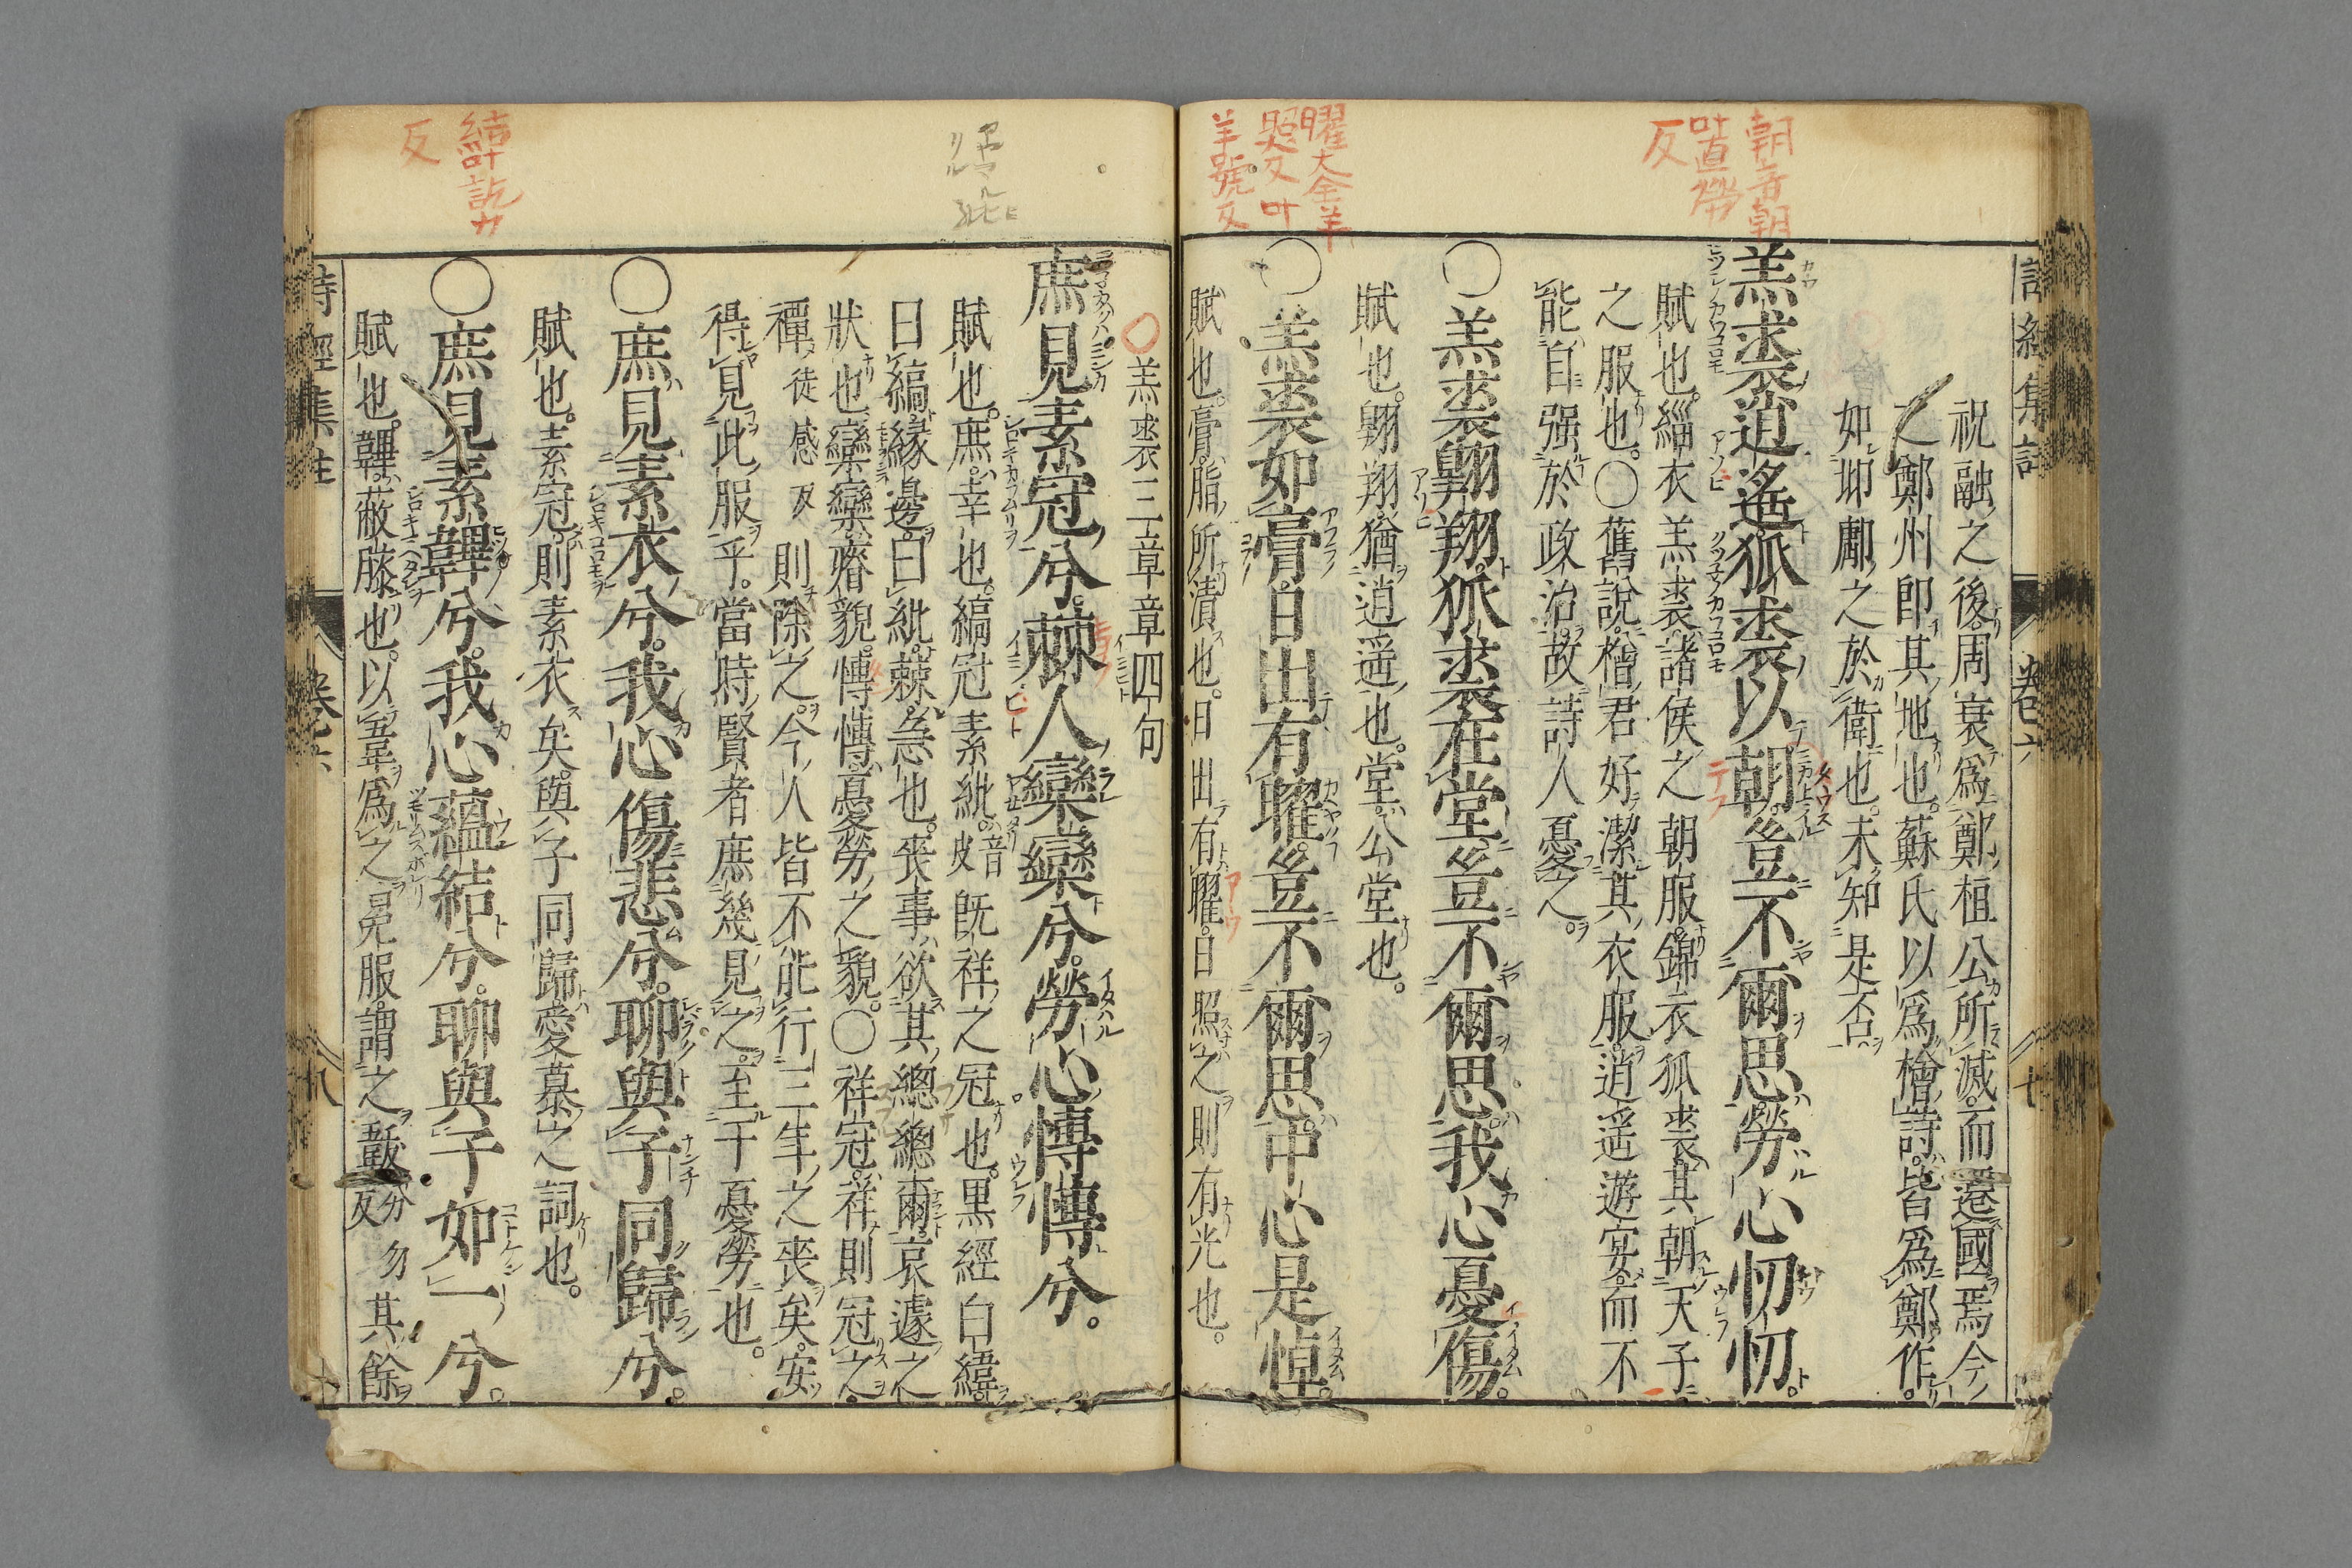 朝音朝
叶直勞
反
曜大全羊
照反叶
羊號反
祝融之後周衰爲鄭桓公所滅而遷國焉今
之鄭州即其地也蘇氏以爲檜詩皆爲鄭作
如邶鄘之於衛也未知是否
羔裘逍遙狐裘以朝豈不爾思勞心忉忉
賦也緇衣羔裘諸侯之朝服錦衣狐裘其朝天子
之服也○舊說檜君好潔其衣服逍遥遊宴而不
能自强於政治故詩人憂之
○羔裘翱翔狐裘在堂豈不爾思我心憂傷
賦也翱翔猶逍遥也堂公堂也
○羔裘如膏日出有曜豈不爾思中心是悼
賦也膏脂所漬也日出有曜日照之則有光也
羔裘三章章四句
庶見素冠兮棘人欒欒兮勞心慱慱兮
賦也庶幸也縞冠素紕音皮既祥之冠也黒經白緯
曰縞緣邊曰紕棘急也喪事欲其總總爾哀遽之
狀也欒欒瘠貌慱慱憂勞之貌○祥冠祥則冠之
禫徒感反則除之今人皆不能行三年之喪矣安
得見此服乎當時賢者庶幾見之至于憂勞也
○庶見素衣兮我心傷悲兮聊與子同歸兮
賦也素冠則素衣矣與子同歸愛慕之詞也
○庶見素韠兮我心蘊結兮聊與子如一兮
賦也韠蔽膝也以韋爲之冕服謂之韍分勿反其餘
結叶訖力
反
詩經集註
卷六